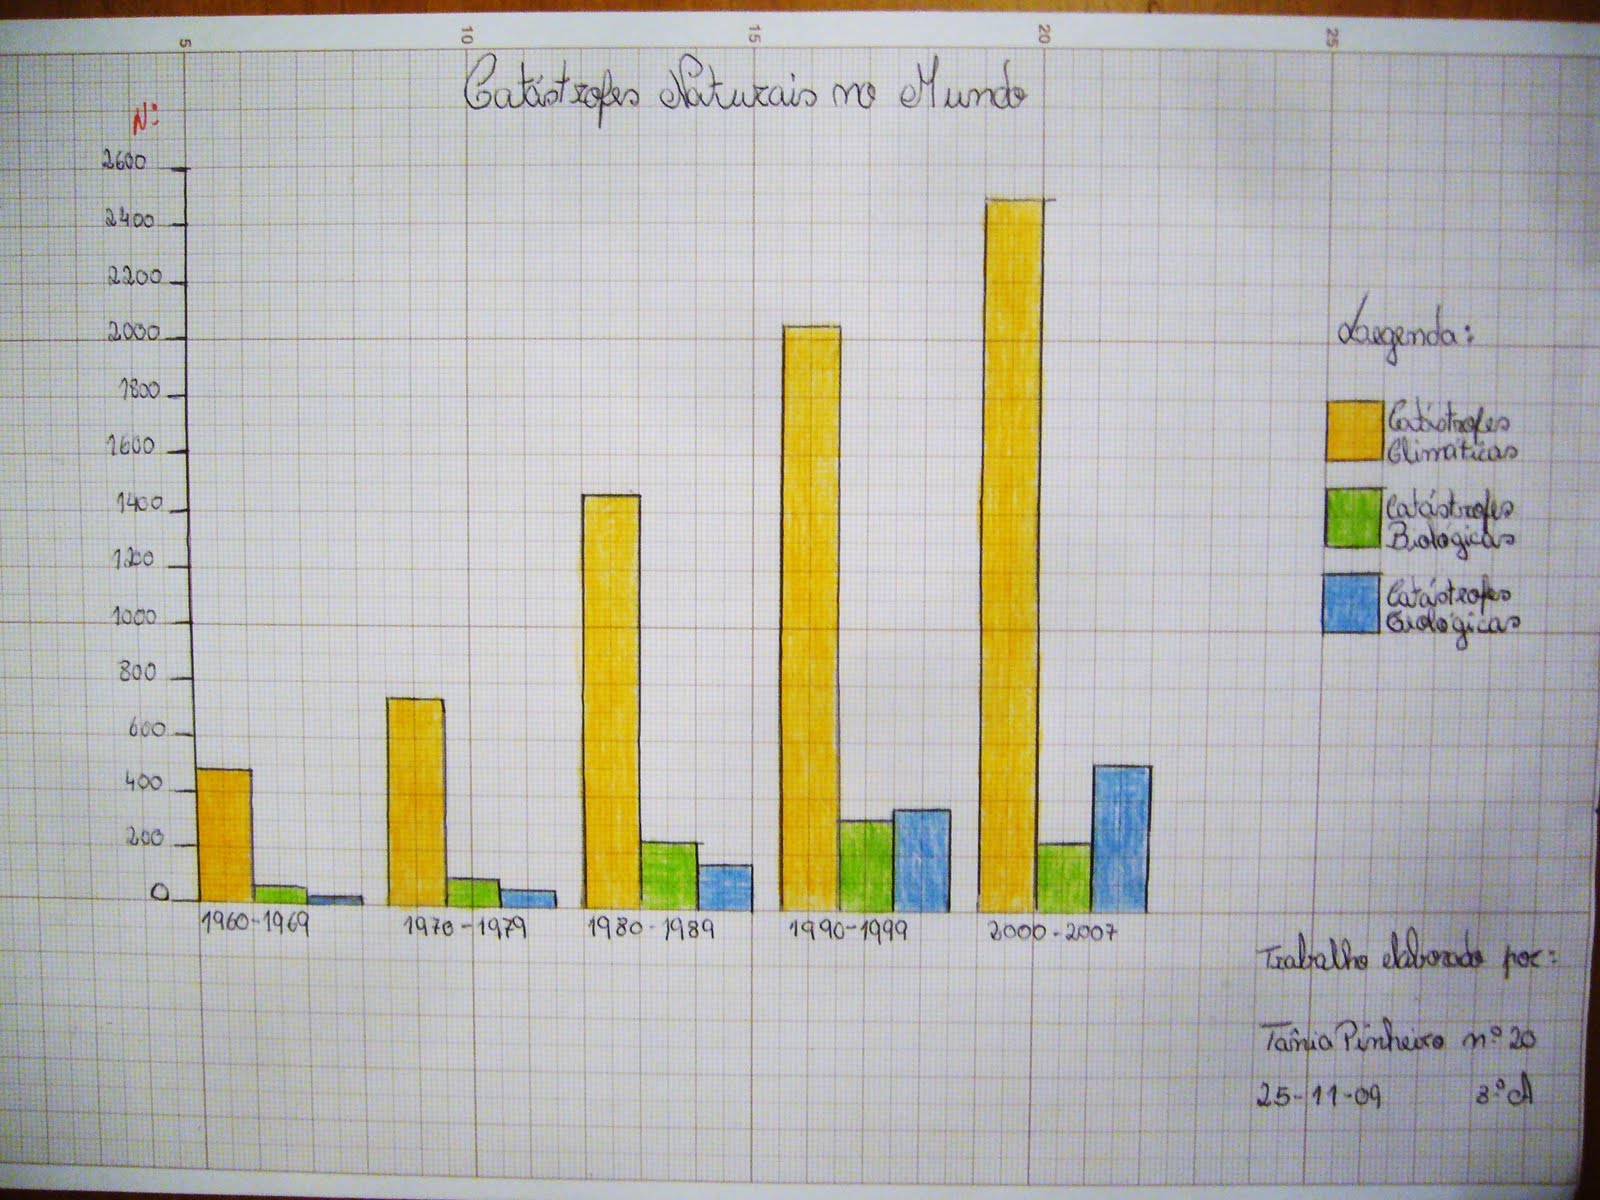 5 10 15 20 25
Catástrofes Naturais no Mundo
Nº
2600
2400
2200
2000
1800
1600
1400
1200
1000
800
600
400
200
0
1960-1969 1970-1979 1980-1989 1990-1999 2000-2007
Legenda:
Catástrofes
Climáticas
Catástrofes
Biológicas
Catástrofes
Geológicas
Trabalho elaborado por:
Tânia Pinheiro nº 20
25-11-09 8ºA